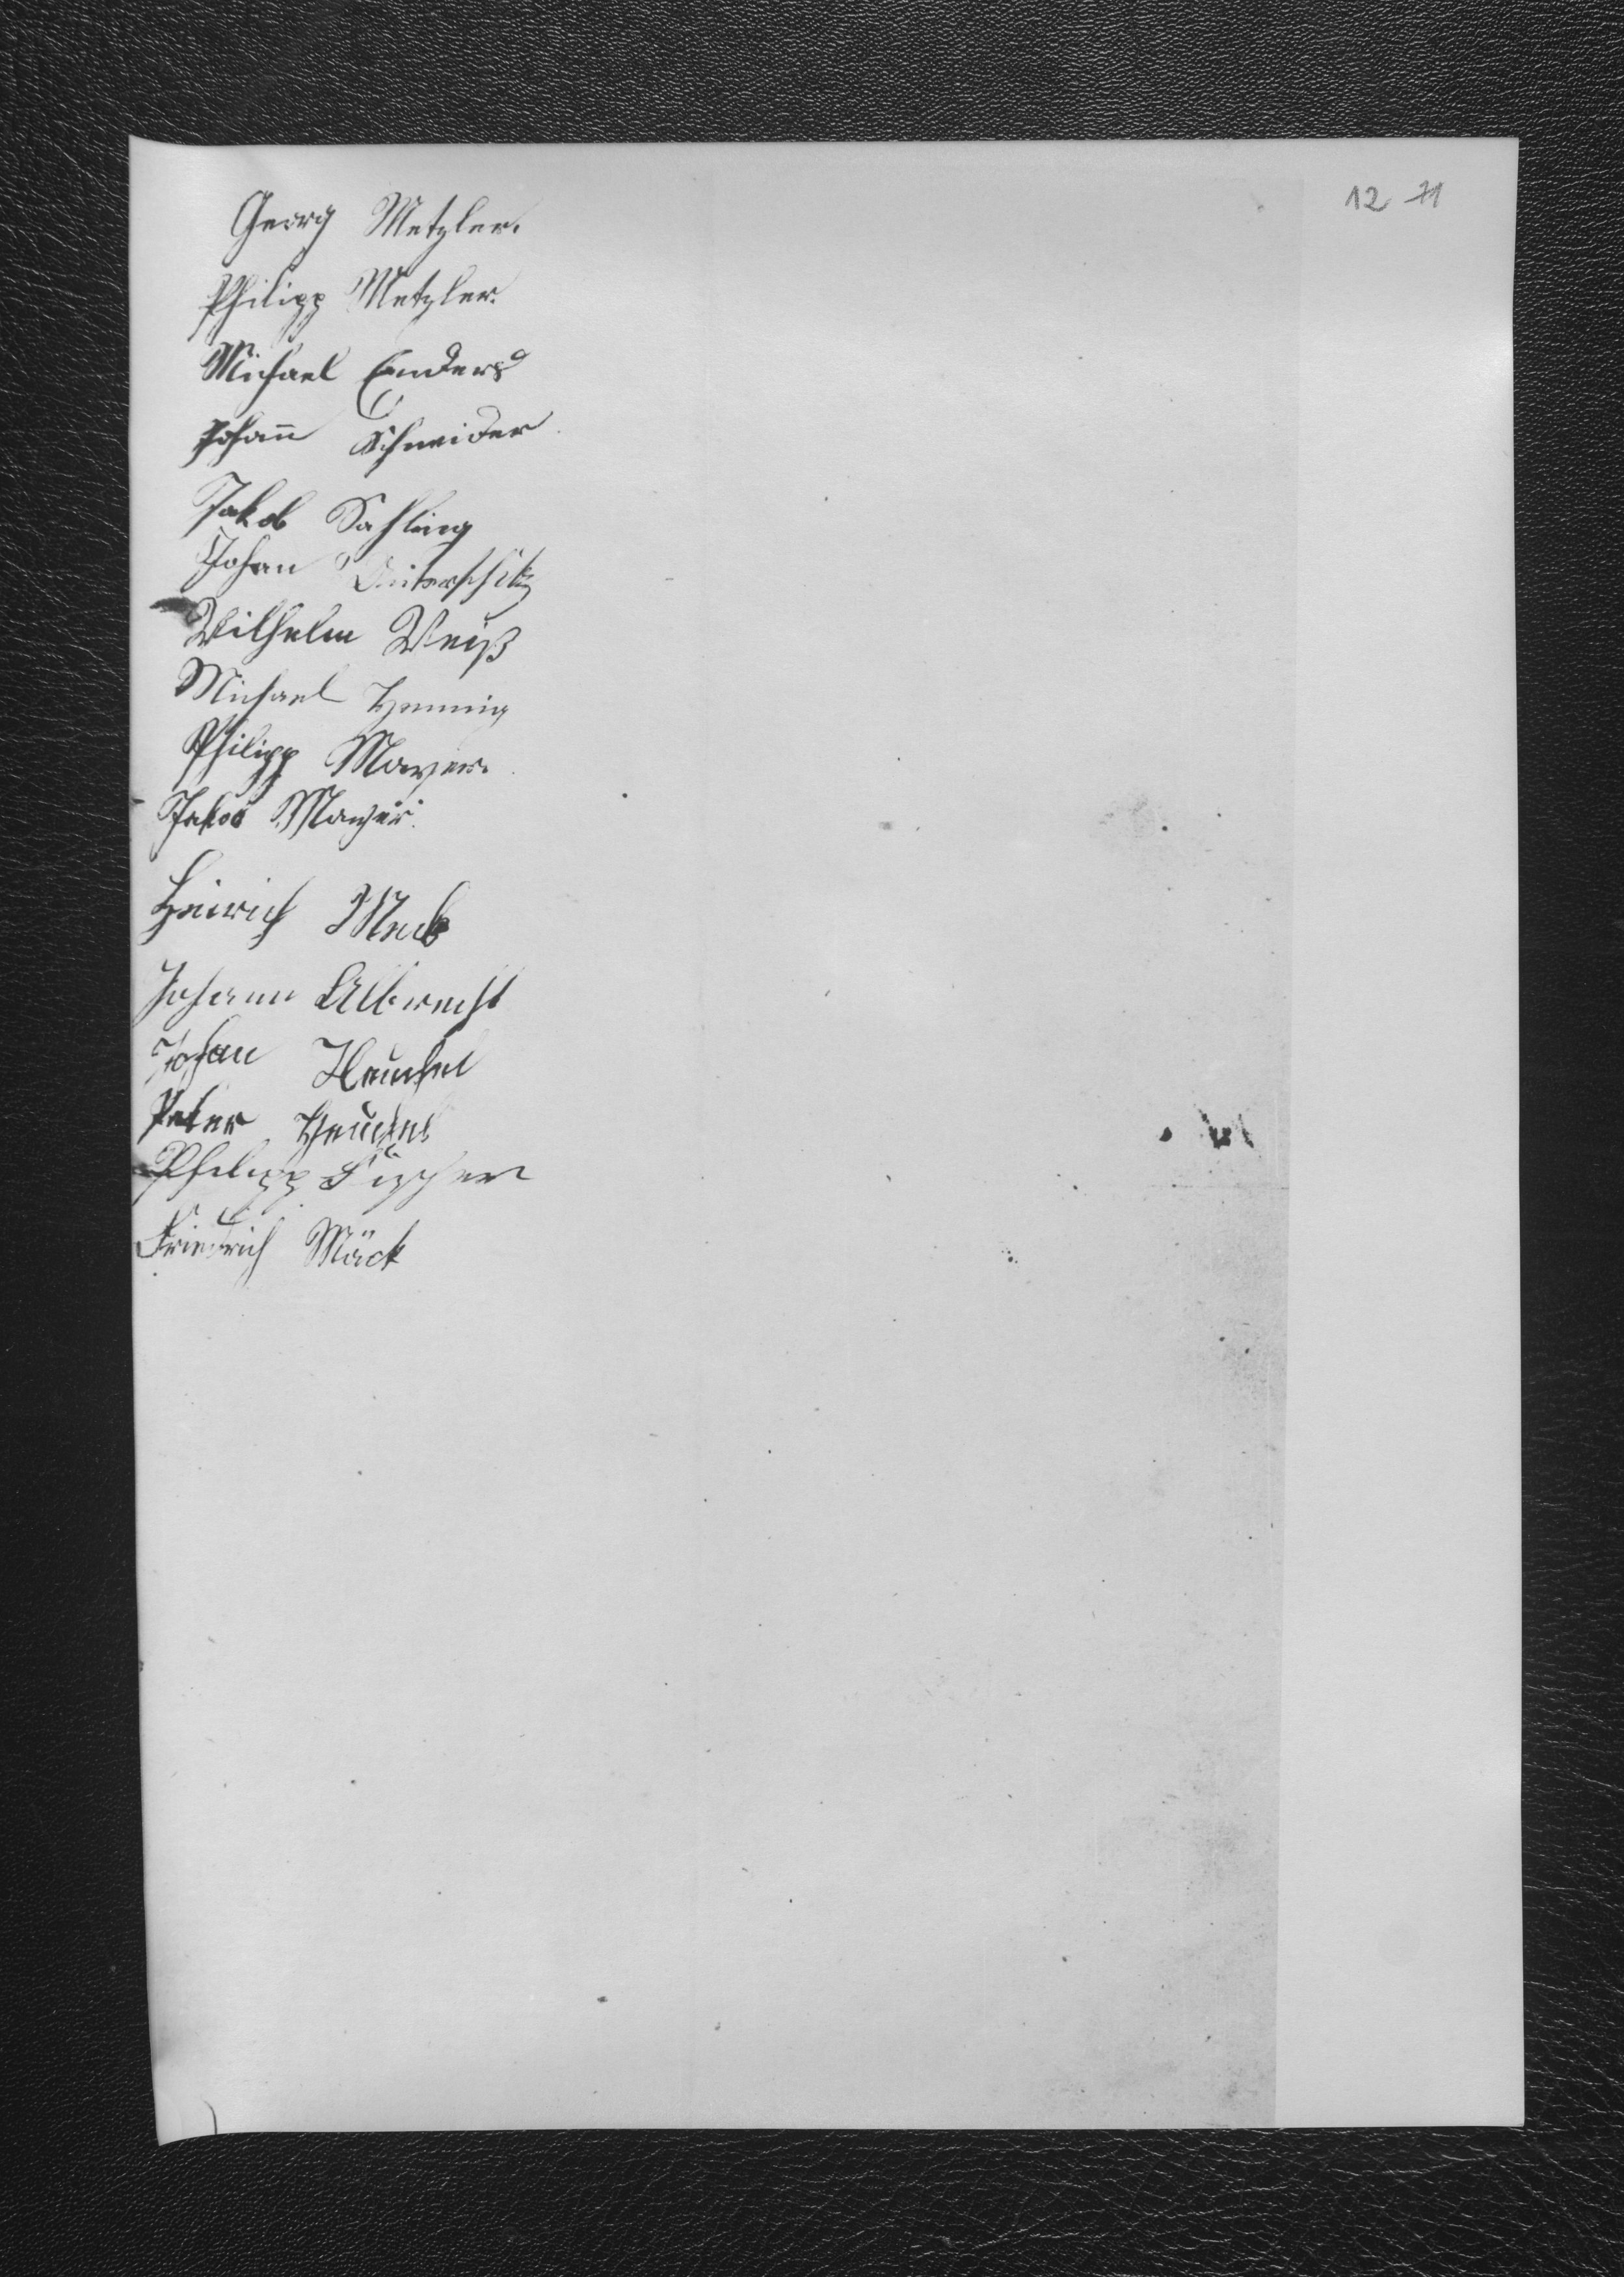 12 71
Georg Metzler.
Philipp Metzler.
Michael Enders
Johann Schneider
Jakob Sahling
Johan Unterschütz
Wilhelm Weiß
Michael Hennig
Philipp Mayer.
Jakob Mayer.
Heinrich Meck
Johann Albrecht
Johan Heuchel
Peter Heuchel
Philipp
Friedrich Mäck